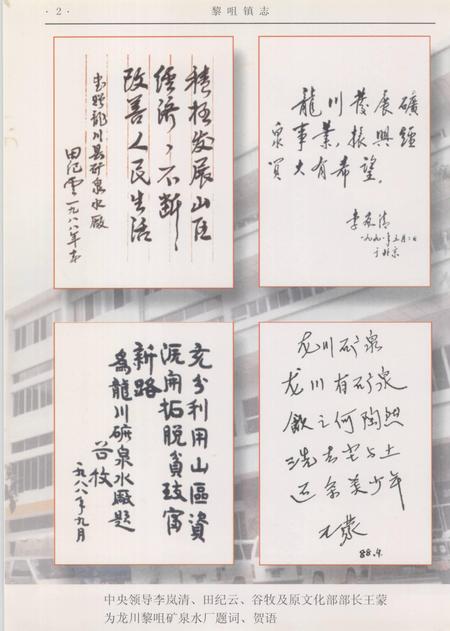 · 2 ·
黎咀镇志
積極发展山区
经济，不断
改善人民生活
龙川县矿泉水厂
田纪云一九八八年
龍川發展礦
泉事業，振興經
貿大有希望。
李岚清
于北京
充分利用山區資
源開拓脱貧致富
新路
為龍川礦泉水廠題
谷牧
一九八八年九月
龙川矿泉
龙川有矿泉
飲之何陶然
洗去尘与土
还余美少年
王蒙
88.9.
中央领导李岚清、田纪云、谷牧及原文化部部长王蒙
为龙川黎咀矿泉水厂题词、贺语